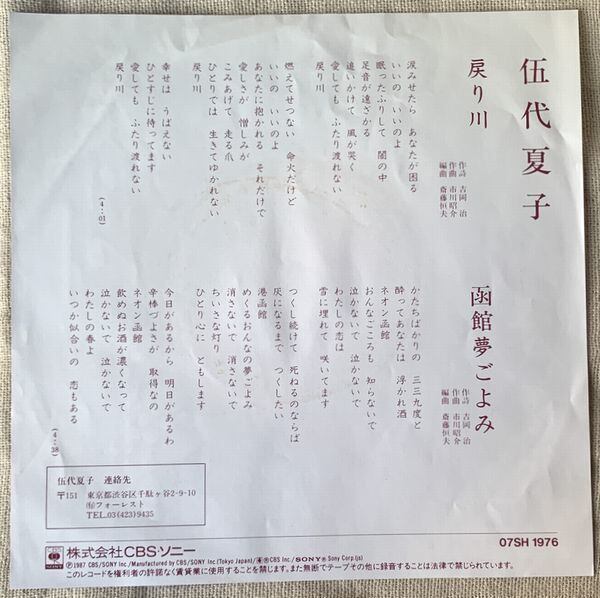 伍代夏子
戻り川
作詩 吉岡 治
作曲 市川昭介
編曲 斎藤恒夫
涙みせたら あなたが困る
いいの いいのよ
眠ったふりして 闇の中
足音が遠ざかる
追いかけて 風が哭く
愛しても ふたり渡れない
戻り川
燃えてせつない 命火だけど
いいの いいのよ
あなたに抱かれる それだけで
愛しさが 憎しみが
こみあげて 走る爪
ひとりでは 生きてゆかれない
戻り川
幸せは うばえない
ひとすじに待ってます
愛しても ふたり渡れない
戻り川
(4:01)
函館夢ごよみ
作詩 吉岡 治
作曲 市川昭介
編曲 斎藤恒夫
かたちばかりの 三三九度と
酔ってあなたは 浮かれ酒
ネオン函館
おんなごころも 知らないで
泣かないで 泣かないで
わたしの恋は
雪に埋れて 咲いてます
つくし続けて 死ねるのならば
灰になるまで つくしたい
港函館
めくるおんなの夢ごよみ
消さないで 消さないで
ちいさな灯り
ひとり心に ともします
今日があるから 明日があるわ
辛棒づよさが 取得なの
ネオン函館
飲めぬお酒が 濃くなって
泣かないで 泣かないで
わたしの春よ
いつか似合いの 恋もある
(4:38)
伍代夏子 連絡先
〒151 東京都渋谷区千駄ヶ谷2-9-10
㈲フォーレスト
TEL.03(423)9435
株式会社CBS・ソニー
07SH 1976
Ⓟ1987 CBS/SONY Inc./Manufactured by CBS/SONY Inc.(Tokyo Japan)/®CBS Inc./SONY® Sony Corp.(js)
このレコードを権利者の許諾なく賃貸業に使用することを禁じます。また無断でテープその他に録音することは法律で禁じられています。